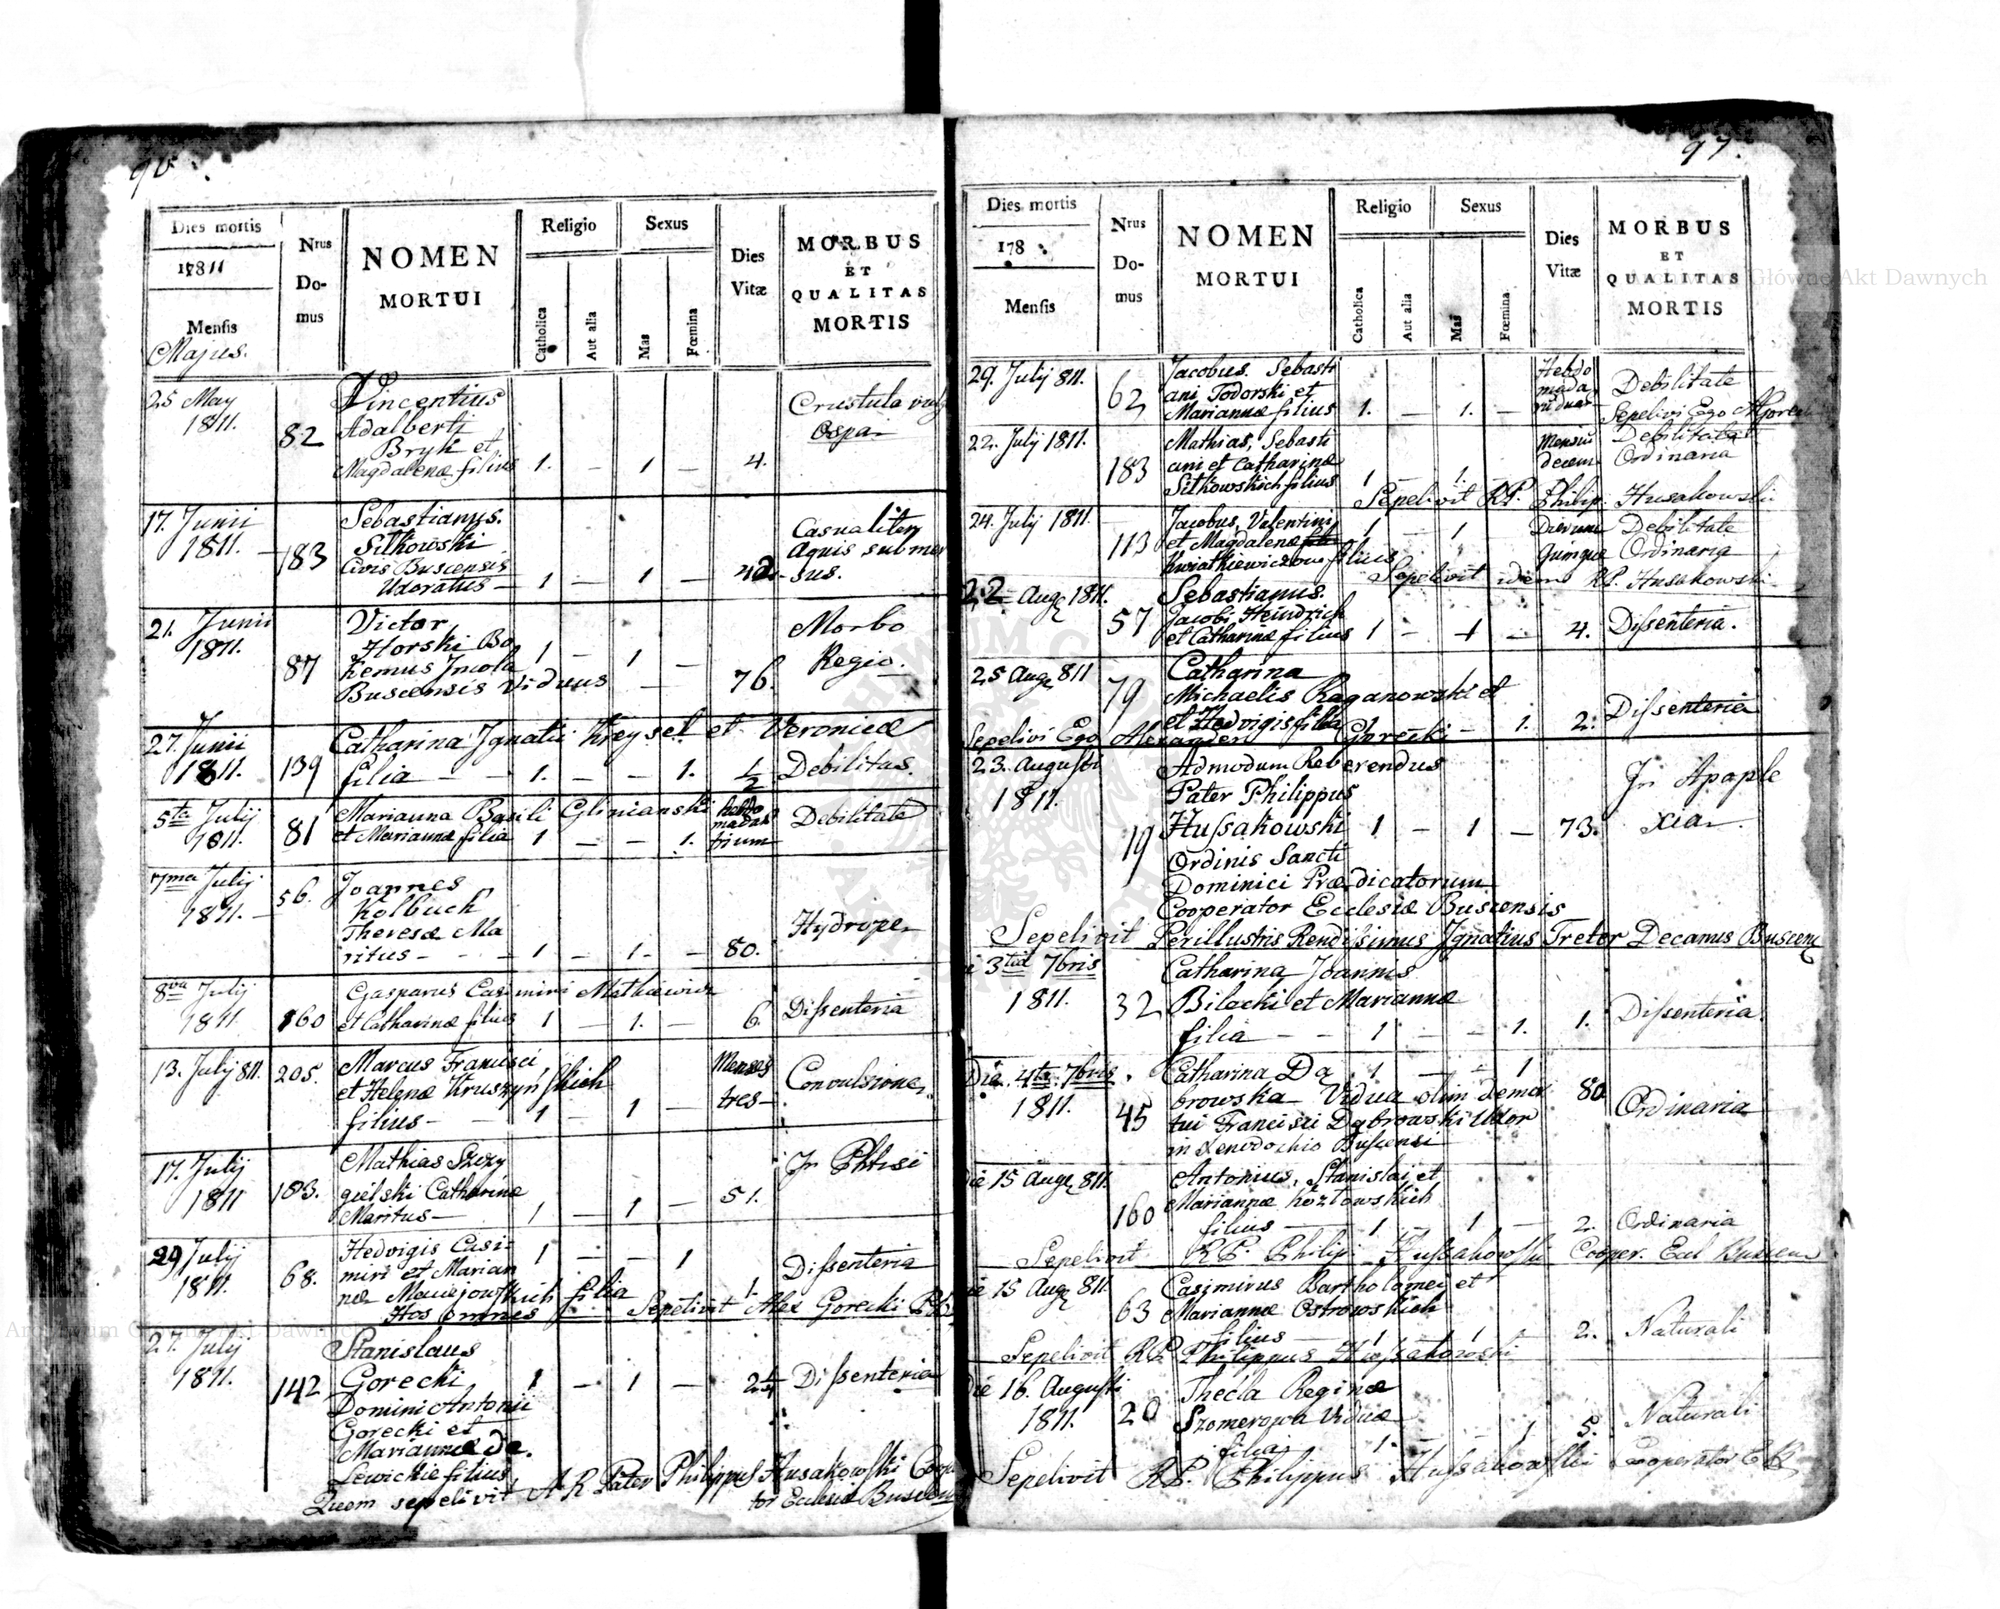 96.
Dies mortis
1811
Mensis
Majus.
Nrus
Do-
mus
NOMEN
MORTUI
Religio
Catholica
Aut alia
Sexus
Mas
Fœmina
Dies
Vitæ
MORBUS
ET
QUALITAS
MORTIS
25 May
1811.
82
Vincentius
Adalberti
Bryk et
Magdalenæ filius 1. — 1 — 4.
Crustula
17. Junii
1811. — 183
Sebastianus.
Sitkowski
Civis Buscensis
Udoratus — 1 — 1 —
Casualiter
Aquis submer
sus.
21. Junii
1811.
87
Victor
Horski Bo
hemus Incola
Buscensis Viduus
1 — 1 — 76.
Morbo
Regio.
27. Junii
1811. 139
Catharina Ignatii Kreysel et Veronicæ
filia — — 1. — — 1. 1/2 Debilitas.
5ta July
1811. 81
Marianna Basili Glinianski
et Mariannæ filia 1 — — 1.
hebdo
madar
trium
Debilitate
7ma July
1811. —
56.
Joannes
Kolbuch
Theresæ Ma
ritus — — 1 — 1. — 80.
Hydrope
8va July
1811 160
Gasparus Casimiri Matkiewicz
et Catharinæ filius 1 — 1. — 6. Dissenteria
13. July 811. 205.
Marcus Francisci
et Helenæ Kruszynskich
filius — 1 — 1 —
Menses
tres —
Convulsione
17. July
1811 183.
Mathias Szczy
gielski Catharinæ
Maritus — 1 — 1 — 51.
In Phtisi
29 July
1811. 68.
Hedvigis Casi-
miri et Marian
næ Maciejowskich filia
1 — — 1 1. Dissenteria
Hos omnes Sepelivit Alex Gorecki
27. July
1811. 142
Stanislaus
Gorecki 1 — 1 — 2 1/4 Dissenteria
Domini Antonii
Gorecki et
Mariannæ de
Lewickie filius
Quem sepelivit A R Pater Philippus Husakowski Coopera
tor Ecclesiæ Buscen
97.
Dies mortis
178
Mensis
Nrus
Do-
mus
NOMEN
MORTUI
Religio
Catholica
Aut alia
Sexus
Mas
Fœmina
Dies
Vitæ
MORBUS
ET
QUALITAS
MORTIS
29. July 811. 62
Jacobus. Sebasti
ani Todorski et
Mariannæ filius 1. — 1. —
Hebdo
mada
Debilitate
Sepelivi Ego A Gorecki
22. July 1811.
183
Mathias, Sebasti
ani et Catharinæ
Sitkowskich filius 1 — 1.
Mensiu
decem
Debilitate
Ordinaria
Sepelivit RP. Philip. Husakowski
24. July 1811.
113
Jacobus, Valentini
et Magdalenæ
Kwiatkiewiczow filius
1 — 1
Dierum
Quinque
Debilitate
Ordinaria
Sepelivit idem RP. Husakowski
22 Aug 1811.
57
Sebastianus.
Jacobi Heindrich
et Catharinæ filius 1 — 1 — 4. Dissenteria.
25 Aug 811
79
Catharina
Michaelis Raganowski et
et Hedvigis filia 1 — — 1. 2. Dissenteria
Sepelivi Ego Alexander Gorecki
23. Augusti
1811.
19
Admodum Reverendus
Pater Philippus
Hussakowski 1 — 1 — 73.
Ordinis Sancti
Dominici Prædicatorum
Cooperator Ecclesiæ Buscensis
In Apople
xia.
Sepelivit Perillustris Rendissimus Ignatius Treter Decanus Buscens
3tia 7bris
1811. 32
Catharina Joannis
Bilecki et Mariannæ
filia — — 1 — — 1. 1. Dissenteria.
Die. 4ta 7bris.
1811. 45
Catharina Da 1 — — 1
browska Vidua olim demor
tui Francisci Dąbrowski Uxor
in Xenodochio Buscensi
80 Ordinaria
Die 15 Aug 811.
160
Antonius, Stanislai et
Mariannæ Kozłowskich
filius — 1 — 1 — 2. Ordinaria
Sepelivit RP. Philip. Hussakowski Cooper. Eccl Buscens
Die 15 Aug 811.
63
Casimirus Bartholomei et
Mariannæ Ostrowskich
filius — 1 — 1 2. Naturali
Sepelivit RP Philippus Hussakowski
Die 16. Augusti
1811. 20
Thecla Reginæ
Szomerowa Viduæ
filia 1. — — 1 5. Naturali
Sepelivit RP. Philippus Hussakowski Cooperator E B
Archiwum Główne Akt Dawnych
Archiwum Główne Akt Dawnych